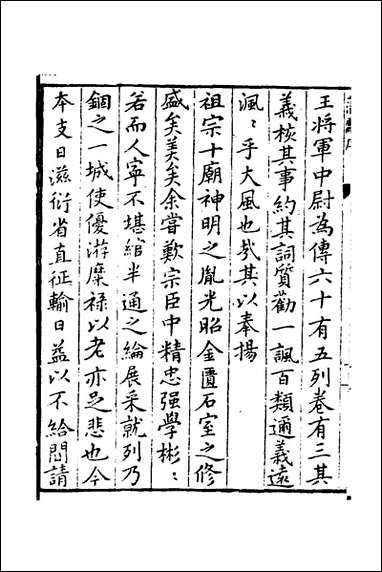 王將軍中尉為傳六十有五列卷有三其
義核其事約其詞質勸一諷百類邇義遠
渢〻乎大風也㢤其以奉揚
祖宗十廟神明之胤光昭金匱石室之修
盛矣美矣余嘗歎宗臣中精忠强學彬〻
若而人寧不堪綰半通之綸展采就列乃
錮之一城使優游糜祿以老亦足悲也今
本支日滋衍省直征輸日益以不給閤請